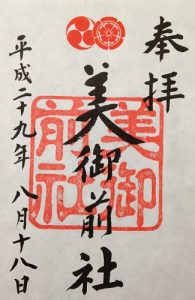 奉拝
美御前社
美御前社
平成二十九年八月十八日